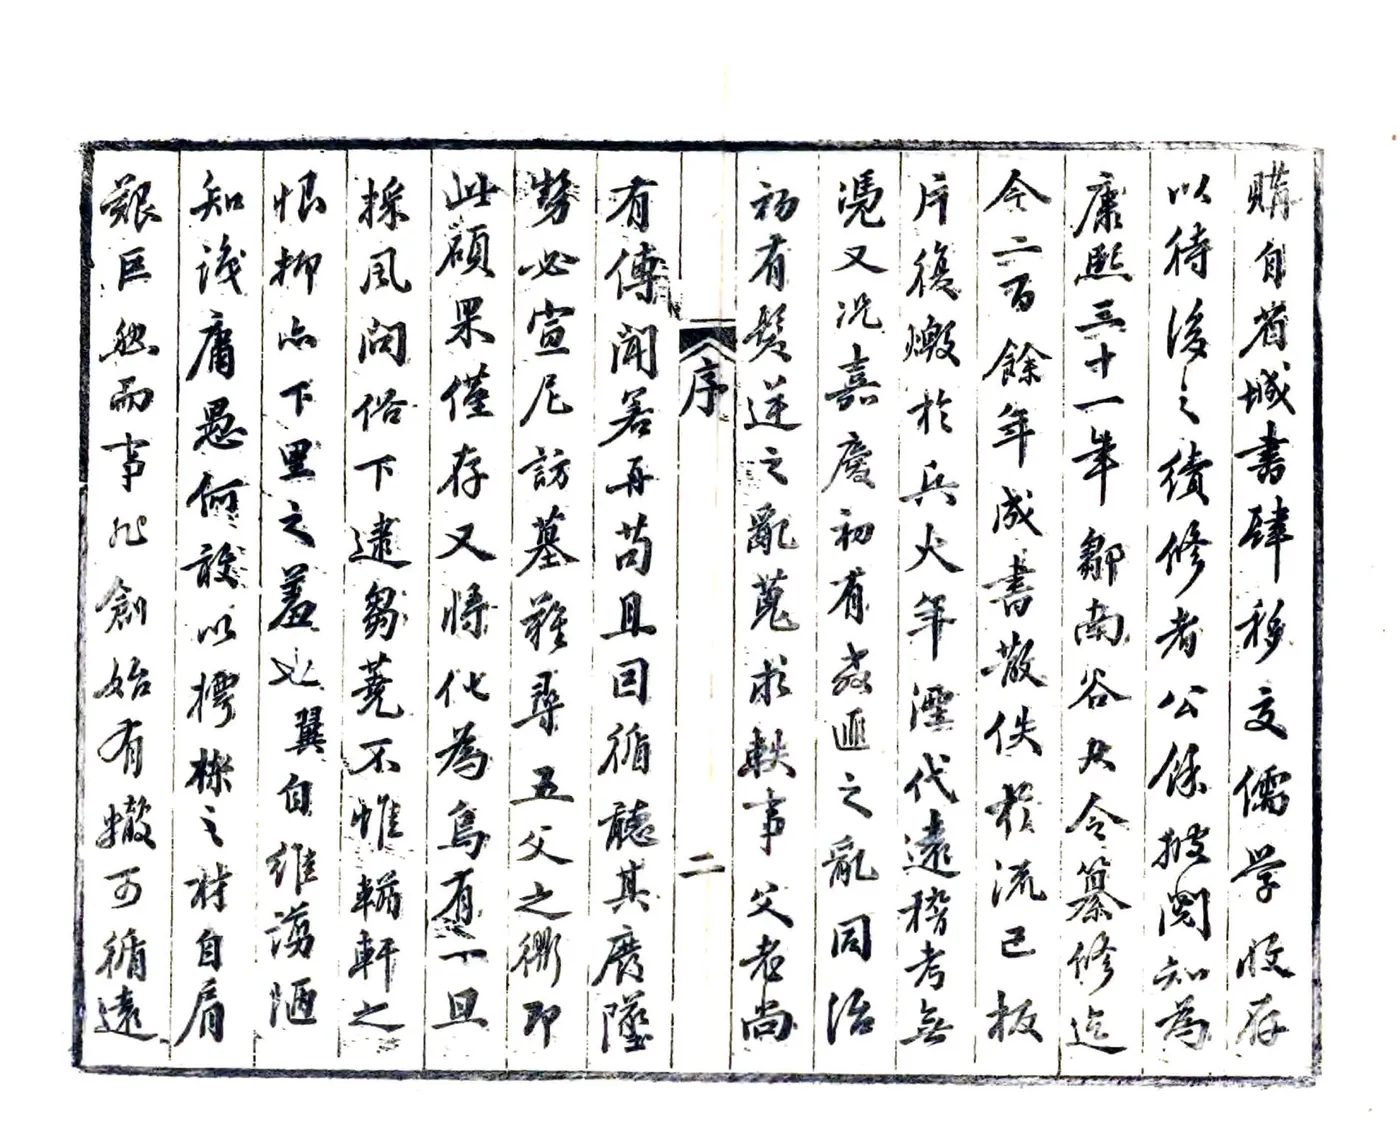 購自省城書肆移交儒學收存
以待後之續修者公餘披閱知為
康熙三十一年鄒南谷大令纂修迄
今二百餘年成書散佚於流已板
片復燬於兵火年湮代遠稽考無
憑又況嘉慶初有教匪之亂同治
初有髮逆之亂蒐求軼事父老尚
序
二
有傳聞若再苟且因循聽其廢墜
勢必宣尼訪墓難尋五父之衢即
此碩果僅存又將化為烏有一旦
採風問俗下逮芻蕘不惟輶軒之
恨抑亦下里之羞也翼自維謭陋
知淺庸愚何敢以樗櫟之材自肩
艱巨然而事非創始有轍可循遠